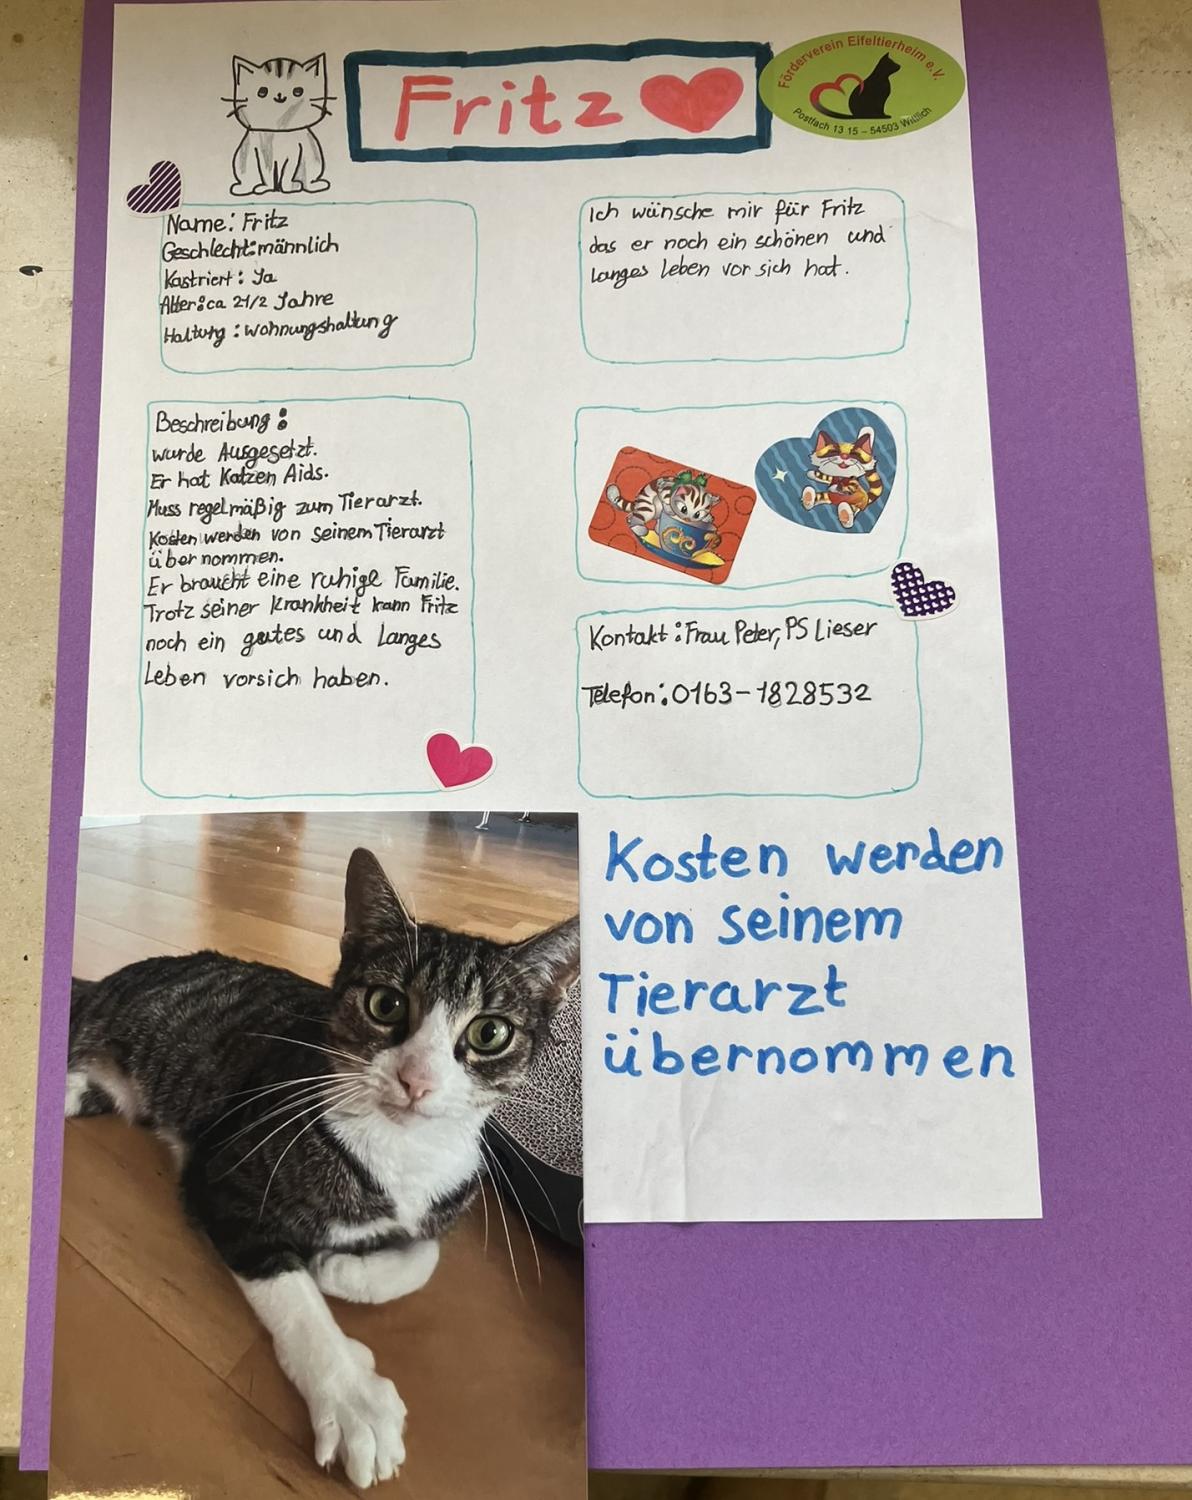 Fritz
Förderverein Eifeltierheim e.V.
Postfach 13 15 – 54503 Wittlich
Name: Fritz
Geschlecht: männlich
Kastriert: Ja
Alter: ca 2 1/2 Jahre
Haltung: Wohnungshaltung
Ich wünsche mir für Fritz
das er noch ein schönen und
langes Leben vor sich hat.
Beschreibung:
wurde Ausgesetzt.
Er hat Katzen Aids.
Muss regelmäßig zum Tierarzt.
Kosten werden von seinem Tierarzt
übernommen.
Er braucht eine ruhige Familie.
Trotz seiner Krankheit kann Fritz
noch ein gutes und Langes
Leben vorsich haben.
Kontakt: Frau Peter, PS Lieser
Telefon: 0163-1828532
Kosten werden
von seinem
Tierarzt
übernommen